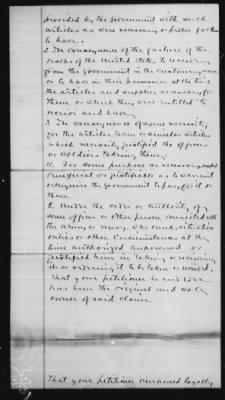 provided by the Government with such
articles as are necessary or proper for them
to have.
2. In consequence of the failure of the
troops of the United States, to receive
from the Government in the customary manner
or to have in their possession at the time
the articles and supplies necessary for
them or which they were entitled to
receive and have.
3. In consequence of some necessity
for the articles taken or similar articles
which necessity justified the officers
or soldiers taking them.
4. For some purpose so necessary useful
beneficial or justifiable as to warrant
or require the Government to pay for it or
them.
5. Under the order or authority, of
some officer or other person connected with
the Army or Navy, who rank, situation
duties or other circumstances at the
time authorized empowered or
justified him in taking or receiving
it or ordering it to be taken or received.
That your petitioner is and
has been the original and sole
owner of said claim.
That your petitioner remained loyally